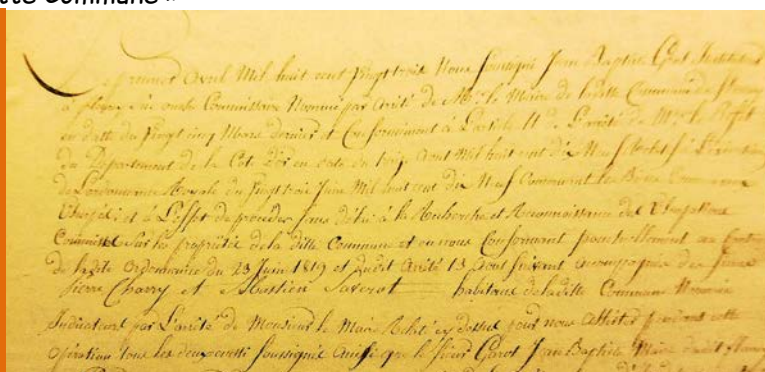 Commune »
Le premier Avril Mil huit cent vingt trois Nous soussigné Jean Baptiste
à Commissaire Nommé par arrêté de Mr. le Maire de la ditte Commune de
en datte du vingt cinq Mars dernier et Conformément à L'article 11 de L'arrêté de Mr le
du Département de la Cote d'or en date du treize Aout Mil huit cent dix Neuf
de L'ordonnance Royale du vingt trois Juin Mil huit cent dix Neuf Concernant les Biens Communaux
Usurpés et à L'effet de proceder sans délai à la Recherche et Reconnaissance des Usurpations
Commises sur les propriétés de la ditte Commune et en nous Conformant ponctuellement au
de la ditte Ordonnance du 23 Juin 1819 et dudit arrêté 13 Aout suivant accompagnés des sieurs
Pierre Charry et Sebastien habitans de la ditte Commune Nommés
Indicateurs par L'arrêté de Monsieur le Maire cy dessus pour nous assister pendant cette
Opération tous les deux aussi soussignés ainsi que le sieur Garot Jean Baptiste Maire dudit